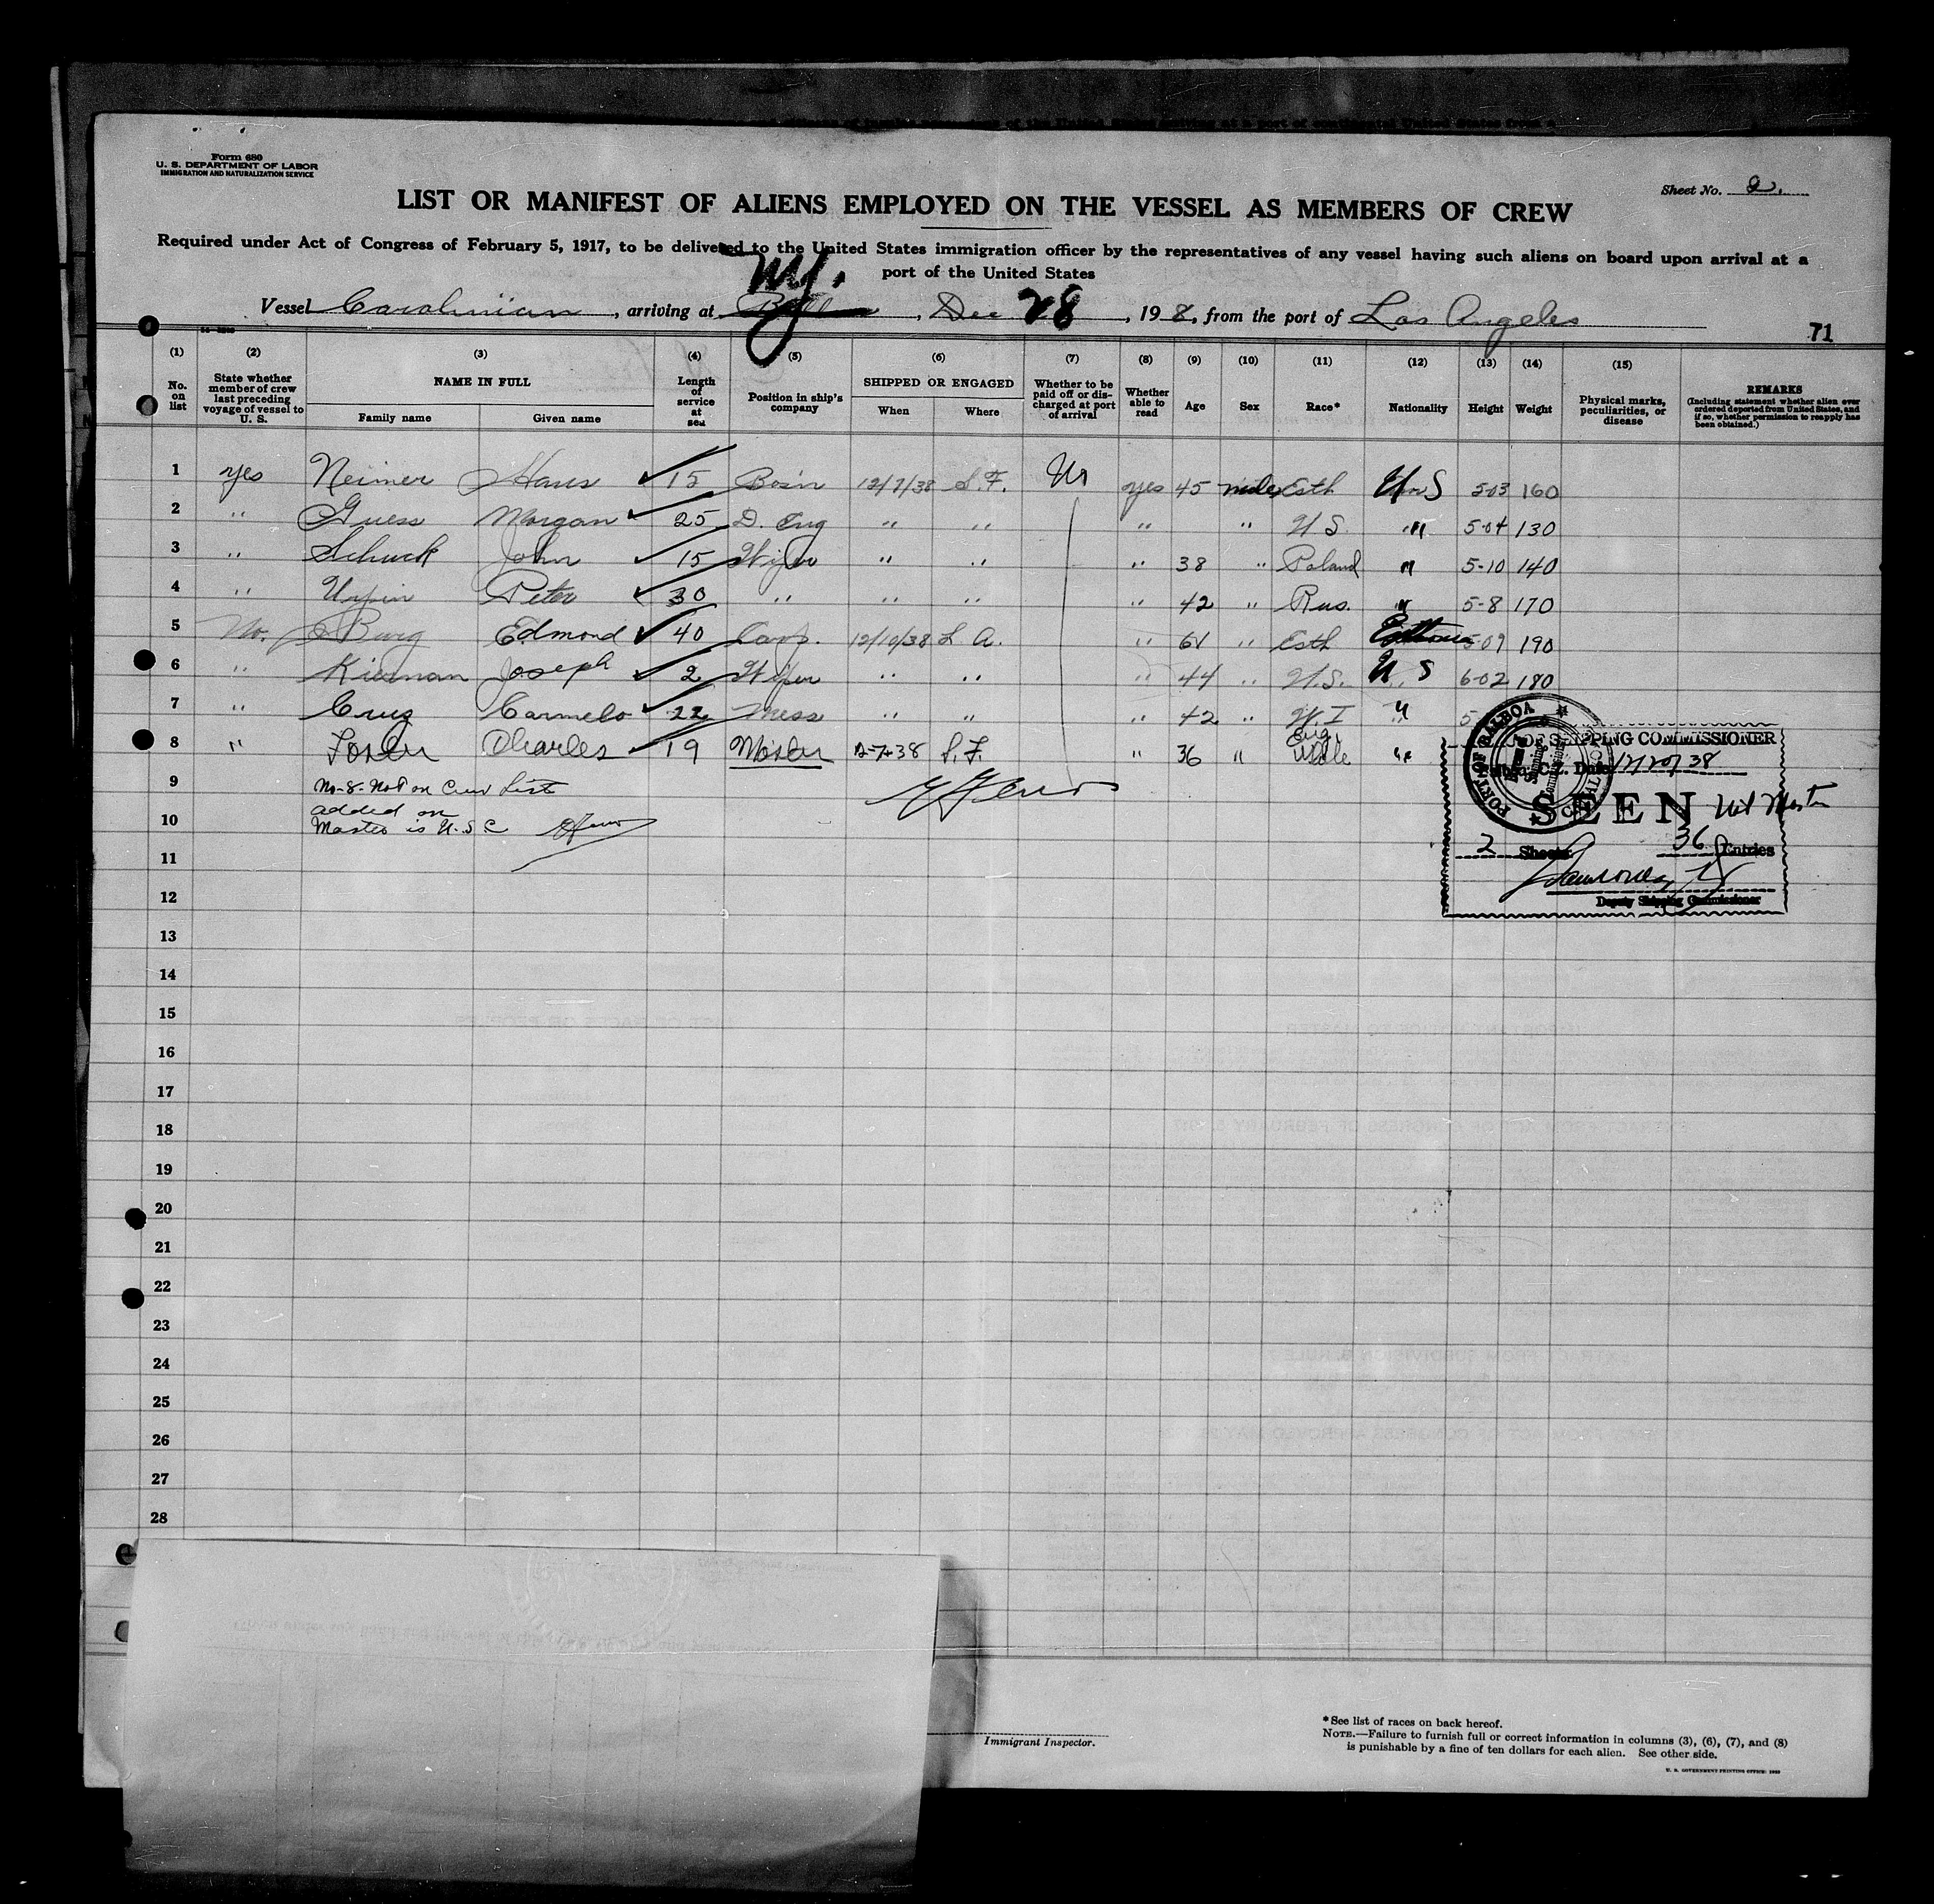 Form 680
U. S. DEPARTMENT OF LABOR
IMMIGRATION AND NATURALIZATION SERVICE
Sheet No. 2.
LIST OR MANIFEST OF ALIENS EMPLOYED ON THE VESSEL AS MEMBERS OF CREW
Required under Act of Congress of February 5, 1917, to be delivered to the United States immigration officer by the representatives of any vessel having such aliens on board upon arrival at a
port of the United States
Vessel Carolinian, arriving at NY., Dec 28, 1938, from the port of Los Angeles
71
(1) (2) (3) (4) (5) (6) (7) (8) (9) (10) (11) (12) (13) (14) (15)
No. on list
State whether member of crew last preceding voyage of vessel to U. S.
NAME IN FULL
Family name
Given name
Length of service at sea
Position in ship's company
SHIPPED OR ENGAGED
When
Where
Whether to be paid off or discharged at port of arrival
Whether able to read
Age
Sex
Race*
Nationality
Height
Weight
Physical marks, peculiarities, or disease
REMARKS
(Including statement whether alien ever ordered deported from United States, and if so, whether permission to reapply has been obtained.)
1 yes Neimer Hans 15 Bosn 12/7/38 S.F. yes 45 male Esth U S 5-03 160
2 " Guess Morgan 25 D. Eng " " " " U S. " 5-04 130
3 " Schuck John 15 Wiper " " " 38 " Poland " 5-10 140
4 " Urpin Peter 30 " " " " 42 " Rus. " 5-8 170
5 No. Burg Edmond 40 Carp. 12/10/38 L. A. " 61 " Esth Esthonia 5-09 190
6 " Kiernan Joseph 2 Wiper " " " 44 " U.S. U S 6-02 180
7 " Cruz Carmelo 22 Mess " " " 42 " W. I " 5
8 " Foster Charles 19 Master 12-7-38 S.F. " 36 " Eng. "
9 No-8-Not on Crew List
added on
10 Master is U.S C
11
12
13
14
15
16
17
18
19
20
21
22
23
24
25
26
27
28
PORT OF BALBOA
SHIPPING COMMISSIONER
C. Z. Date 12/20/38
SEEN
2 Sheets 36 Entries
Deputy Shipping Commissioner
Immigrant Inspector.
*See list of races on back hereof.
NOTE.—Failure to furnish full or correct information in columns (3), (6), (7), and (8)
is punishable by a fine of ten dollars for each alien. See other side.